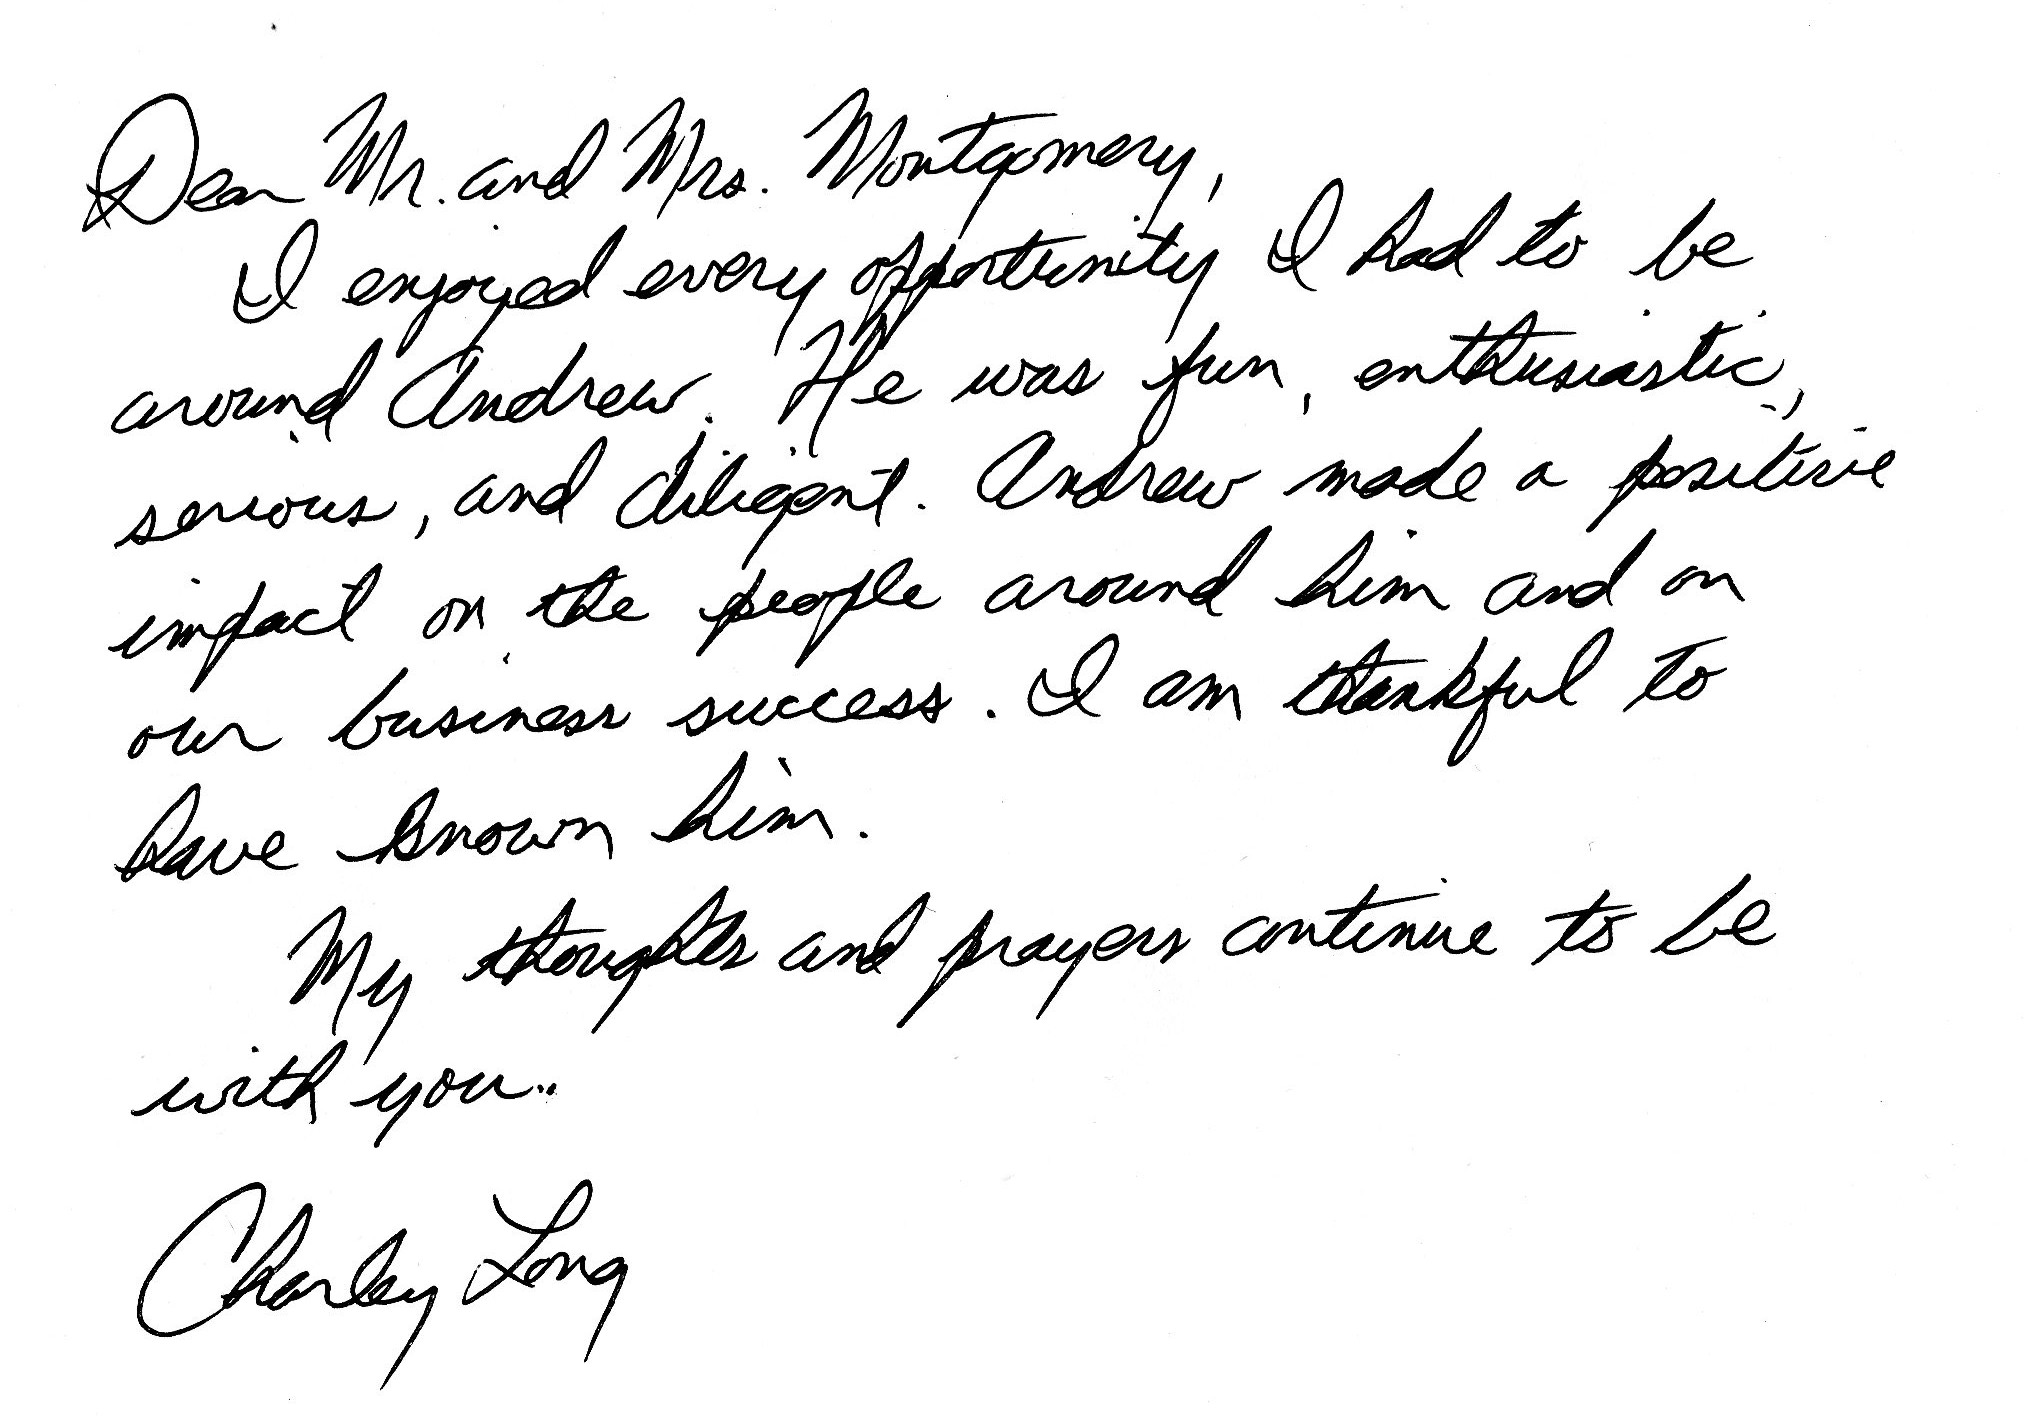 Dear Mr. and Mrs. Montgomery,
I enjoyed every opportunity I had to be
around Andrew. He was fun, enthusiastic,
serious, and diligent. Andrew made a positive
impact on the people around him and on
our business success. I am thankful to
have known him.
My thoughts and prayers continue to be
with you..
Charley Long